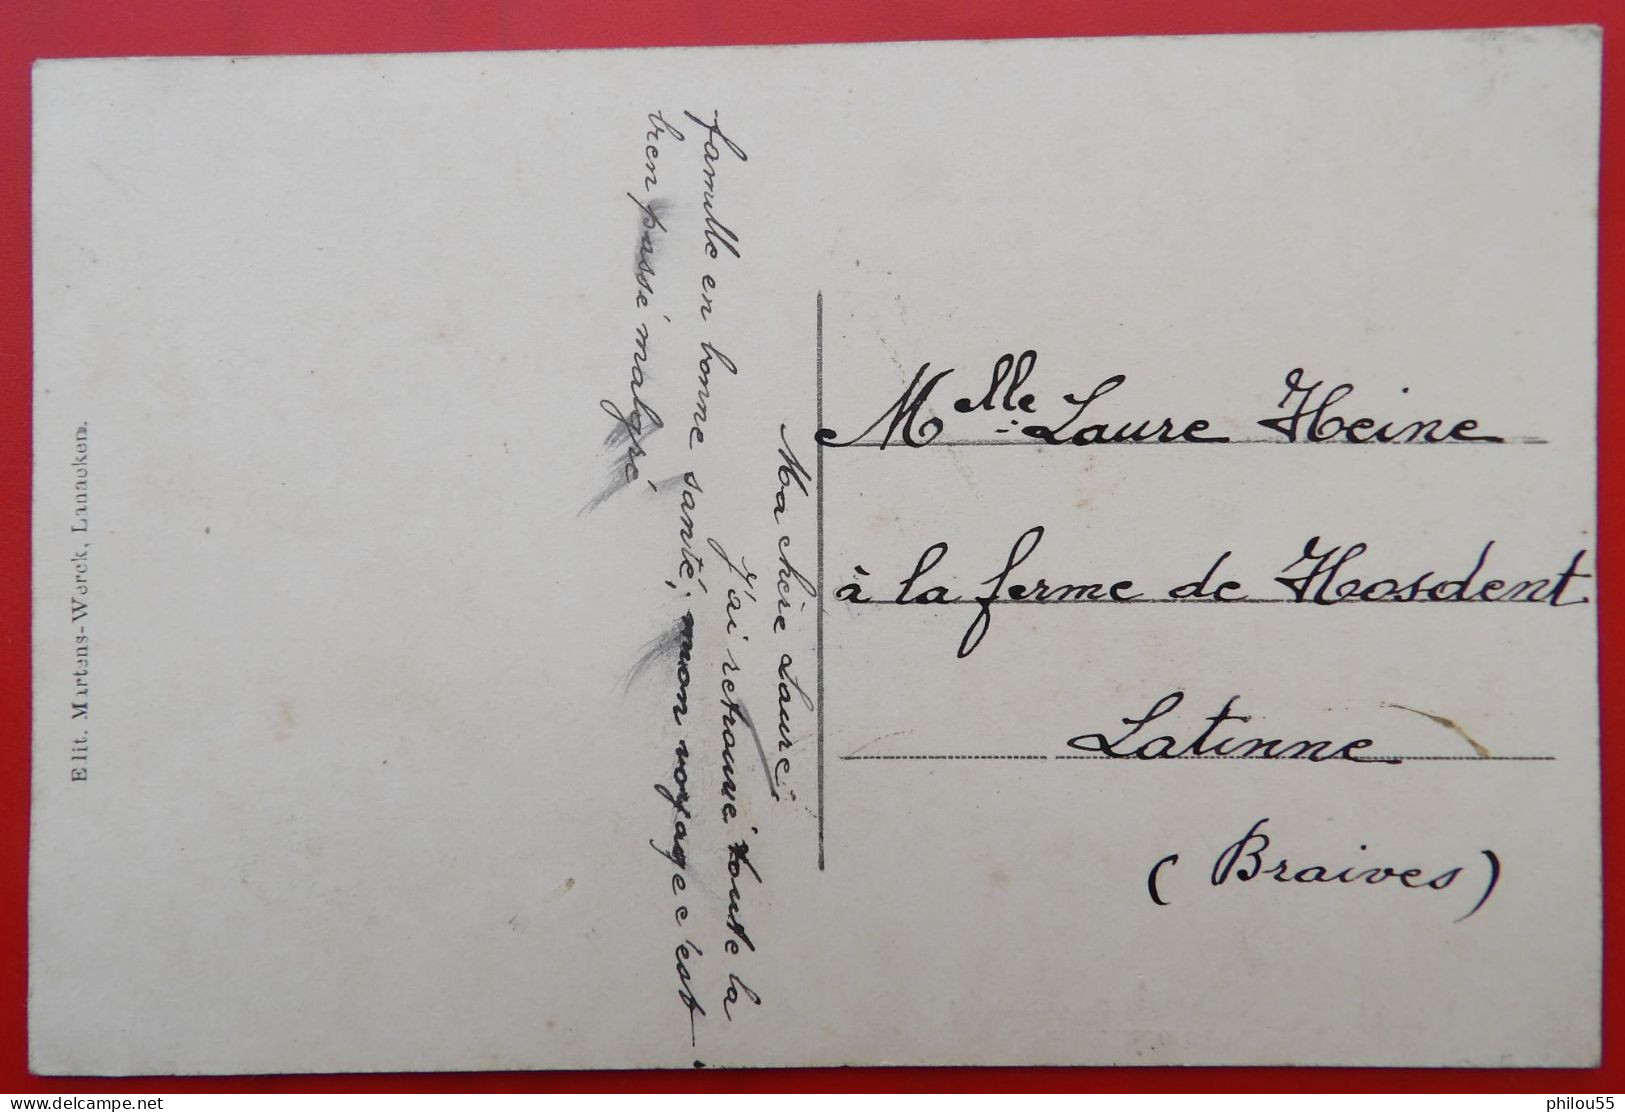 Ma chère Laure,
J'ai retrouvé toute la
famille en bonne santé, mon voyage c'est
bien passé malgré
Mlle Laure Heine
à la ferme de Hosdent
Latinne
(Braives)
Edit. Martens-Werck, Lanaeken.
delcampe.net
philou55